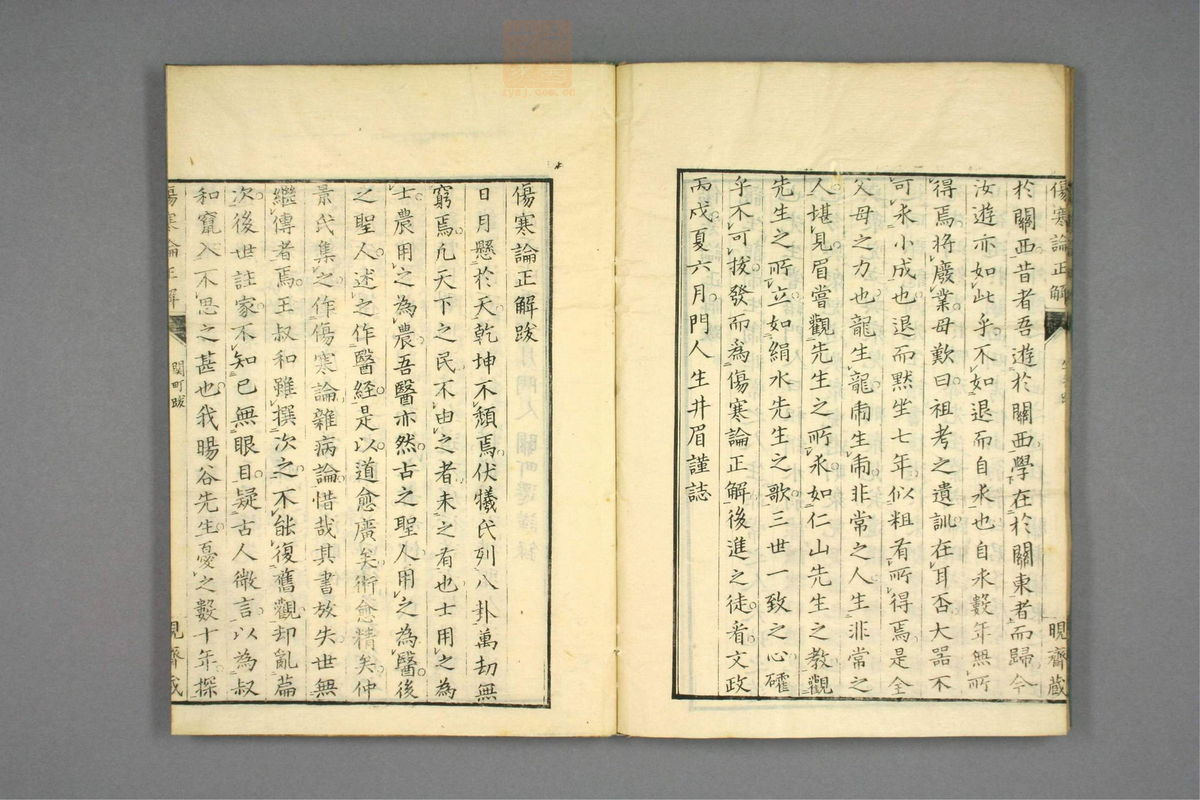 傷寒論正解
晛齋藏
於關西昔者吾遊於關西學在於關東者而歸今
汝遊亦如此乎不如退而自求也自求數年無所
得焉將廢業母歎曰祖考之遺訓在耳否大器不
可求小成也退而默坐七年似粗有所得焉是全
父母之力也龍生龍鳳生鳳非常之人生非常之
人堪見眉嘗觀先生之所求如仁山先生之教觀
先生之所立如絹水先生之歌三世一致之心確
乎不可拔發而為傷寒論正解後進之徒看文政
丙戌夏六月門人生井眉謹誌
傷寒論正解跋
日月懸於天乾坤不頹焉伏犧氏列八卦萬劫無
窮焉凡天下之民不由之者未之有也士用之為
士農用之為農吾醫亦然古之聖人用之為醫後
之聖人述之作醫經是以道愈廣矣術愈精矣仲
景氏集之作傷寒論雜病論惜哉其書放失世無
繼傳者焉王叔和雖撰次之不能復舊觀却亂篇
次後世註家不知已無眼目疑古人微言以為叔
和竄入不思之甚也我暘谷先生憂之數十年探
傷寒論正解
關町跋
晛齋藏